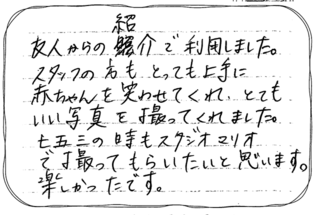 友人からの紹介で利用しました。
スタッフの方も とっても上手に
赤ちゃんを笑わせてくれ、とても
いい写真を撮ってくれました。
七五三の時もスタジオマリオ
で撮ってもらいたいと思います。
楽しかったです。